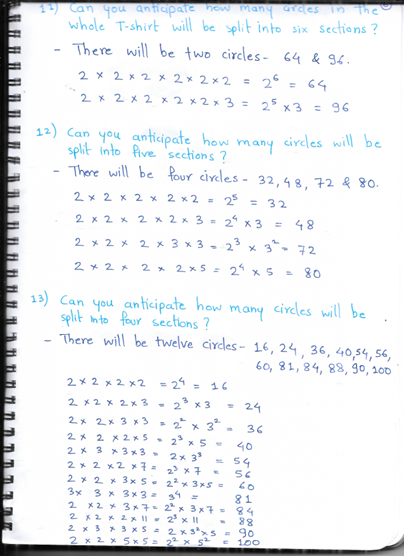 11) Can you anticipate how many circles in the
whole T-shirt will be split into six sections?
- There will be two circles- 64 & 96.
2 × 2 × 2 × 2 × 2 × 2 = 2⁶ = 64
2 × 2 × 2 × 2 × 2 × 3 = 2⁵ × 3 = 96
12) Can you anticipate how many circles will be
split into five sections?
- There will be four circles - 32, 48, 72 & 80.
2 × 2 × 2 × 2 × 2 = 2⁵ = 32
2 × 2 × 2 × 2 × 3 = 2⁴ × 3 = 48
2 × 2 × 2 × 3 × 3 = 2³ × 3² = 72
2 × 2 × 2 × 2 × 5 = 2⁴ × 5 = 80
13) Can you anticipate how many circles will be
split into four sections?
- There will be twelve circles - 16, 24, 36, 40, 54, 56,
60, 81, 84, 88, 90, 100
2 × 2 × 2 × 2 = 2⁴ = 16
2 × 2 × 2 × 3 = 2³ × 3 = 24
2 × 2 × 3 × 3 = 2² × 3² = 36
2 × 2 × 2 × 5 = 2³ × 5 = 40
2 × 3 × 3 × 3 = 2 × 3³ = 54
2 × 2 × 2 × 7 = 2³ × 7 = 56
2 × 2 × 3 × 5 = 2² × 3 × 5 = 60
3 × 3 × 3 × 3 = 3⁴ = 81
2 × 2 × 3 × 7 = 2² × 3 × 7 = 84
2 × 2 × 2 × 11 = 2³ × 11 = 88
2 × 3 × 3 × 5 = 2 × 3² × 5 = 90
2 × 2 × 5 × 5 = 2² × 5² = 100